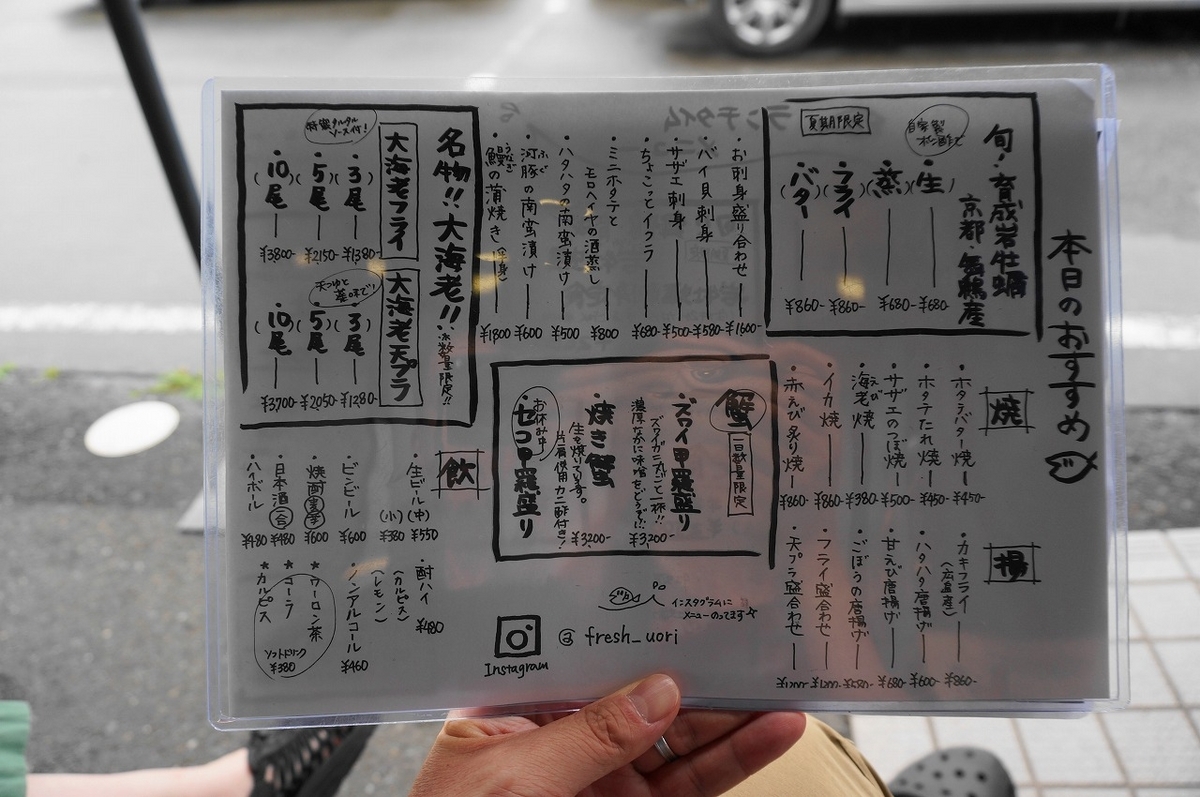 本日のおすすめ
旬!育成岩牡蠣
京都・舞鶴産
自家製ポン酢で
夏期限定
(生) ¥680-
(蒸) ¥680-
(フライ) ¥860-
(バター) ¥860-
・お刺身盛り合わせ ¥1600-
・バイ貝刺身 ¥580-
・サザエ刺身 ¥500-
・ちょこっとイクラ ¥680-
・ミニホタテと
モロヘイヤの酒蒸し ¥800
・ハタハタの南蛮漬け ¥500
・河豚の南蛮漬け ¥600
ふぐ
・鰻の蒲焼き(半身) ¥1800
うなぎ
名物!!大海老!!
※数量限定!!
大海老フライ
特製タルタルソース付!
・3尾 ¥1380-
・5尾 ¥2150-
・10尾 ¥3800-
大海老天プラ
天つゆと藻塩で!
・3尾 ¥1280-
・5尾 ¥2050-
・10尾 ¥3700-
焼
・ホタテバター焼 ¥450-
・ホタテたれ焼 ¥450-
・サザエのつぼ焼 ¥500-
・海老焼 ¥380-
えび
・イカ焼 ¥860-
・赤えび炙り焼 ¥860-
揚
・カキフライ
(広島産) ¥860-
・ハタハタ唐揚げ ¥600-
・甘えび唐揚げ ¥680-
・ごぼうの唐揚げ
・フライ盛合わせ
・天プラ盛合わせ
蟹
一日数量限定
・ズワイ甲羅盛り
ズワイガニ丸ごと一杯!!
濃厚なかに味噌をどうぞ!!
¥3200-
・焼き蟹
生を焼いています。
片肩使用 カニ酢付き!
¥3200-
・セコ甲羅盛り
お休み中!
飲
・生ビール(中) ¥550
(小) ¥380
・ビンビール ¥600
・焼酎(麦・芋) ¥600
・日本酒(一合) ¥480
・ハイボール ¥480
・酎ハイ ¥480
(カルピス)
(レモン)
・ノンアルコール ¥460
*ウーロン茶
*コーラ
*カルピス
ソフトドリンク
¥380
インスタグラムに
メニューのってます☆
Instagram
@ fresh_uori